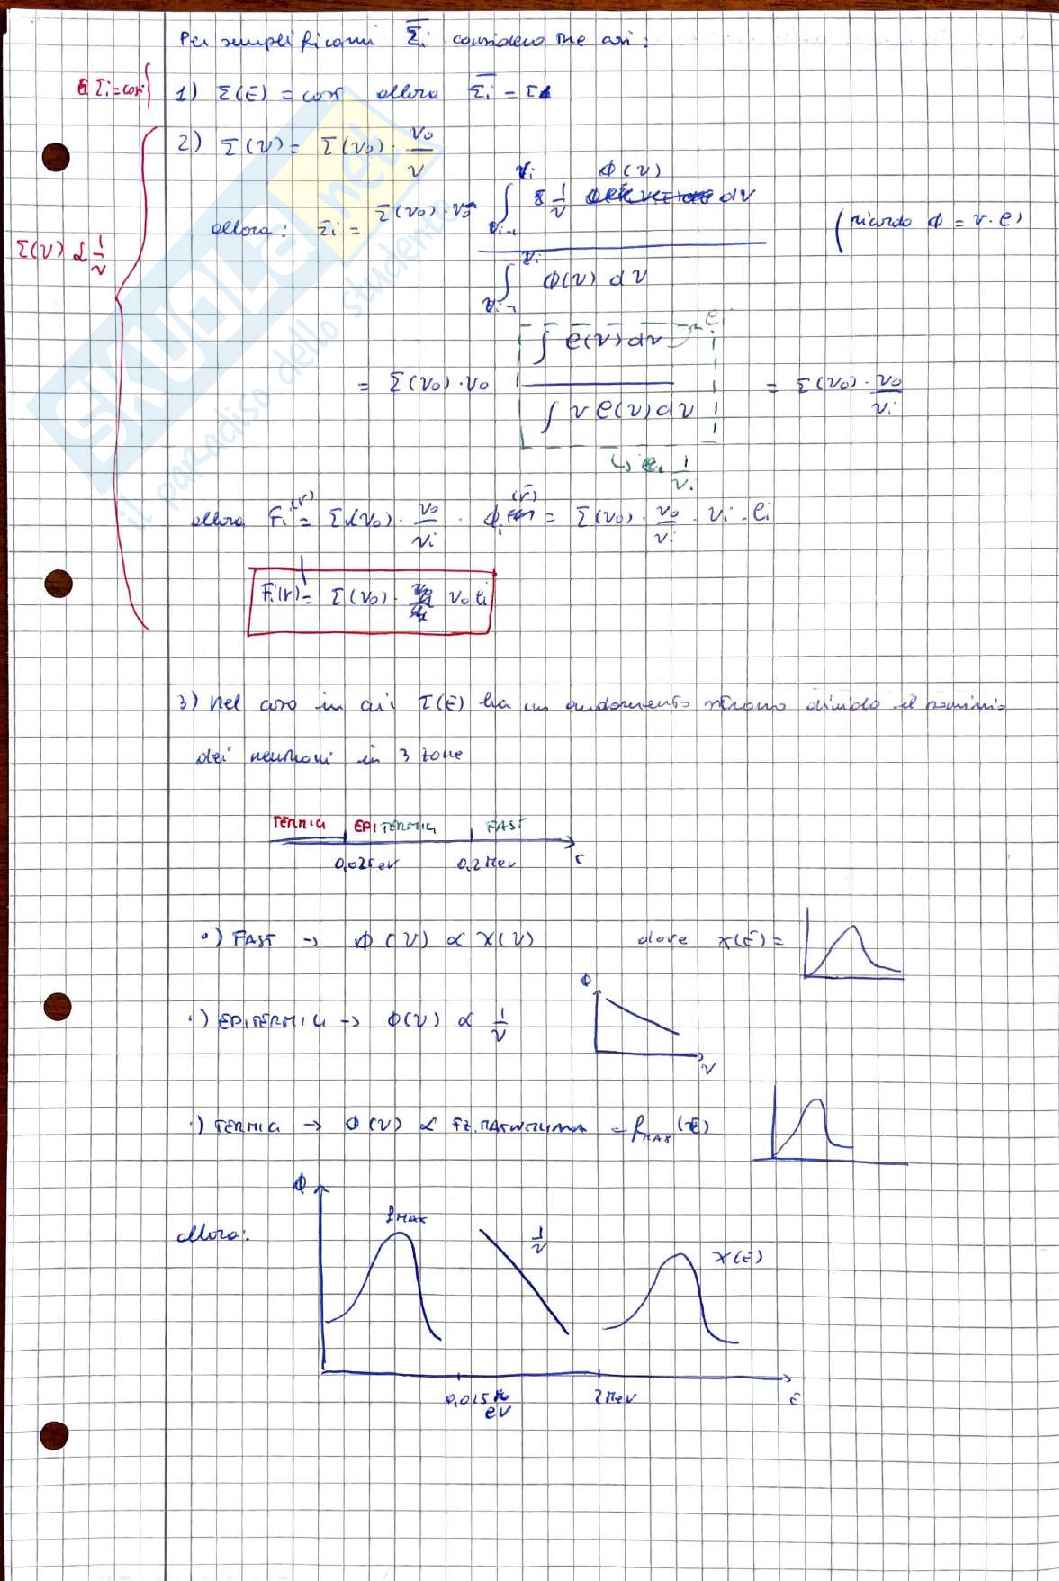 Per semplificarmi Σ̅i considero tre casi:
Σi = cost
1) Σ(E) = cost allora Σ̅i = Σ
2) Σ(v) = Σ(v0) · v0/v
Σ(v) α 1/v
allora: Σ̅i = Σ(v0) · v0 ∫ 1/v ϕ(v) dv / ∫ ϕ(v) dv
(ricordo ϕ = v · e)
= Σ(v0) · v0 ∫ e(v) dv / ∫ v e(v) dv = Σ(v0) · v0/vi
↳ 1/vi
allora Fi(r) = Σ(v0) · v0/vi · ϕi(r) = Σ(v0) · v0/vi · vi · ei
Fi(r) = Σ(v0) · v0 ei
3) Nel caso in cui Σ(E) ha un andamento strano divido il dominio
dei neutroni in 3 zone
TERMICI EPITERMICI FAST
0,025 eV 0,2 MeV E
·) FAST → ϕ(v) ∝ χ(v) dove χ(E) =
·) EPITERMICI → ϕ(v) ∝ 1/v
ϕ
v
·) TERMICI → ϕ(v) ∝ = fMAX(E)
allora:
ϕ
fMAX
1/v
χ(E)
0,015 eV
2 MeV
E
SKUOLA.net
il paradiso dello studente